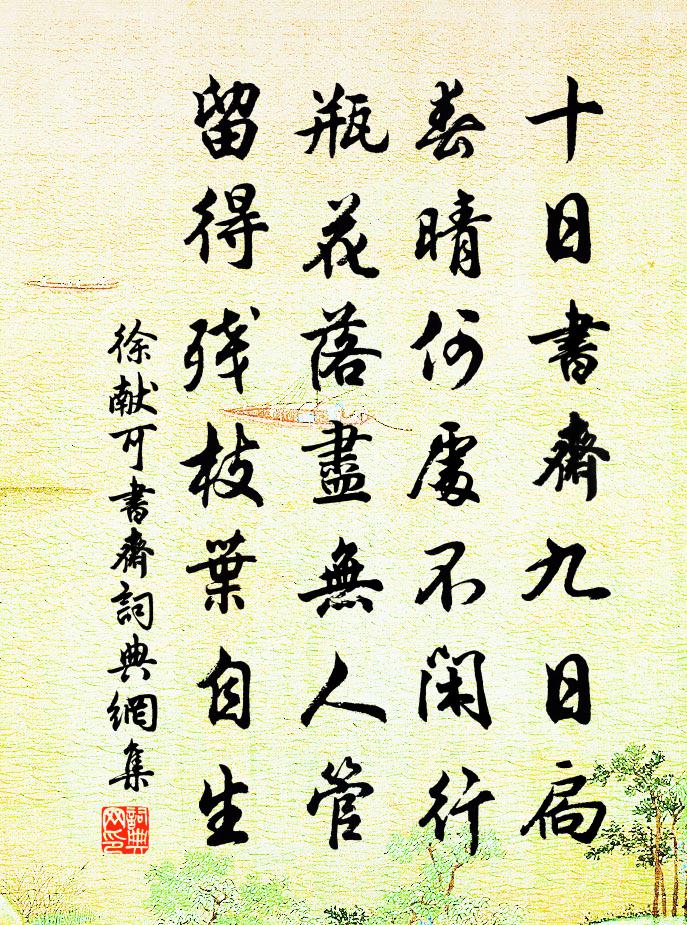 十日書齋九日扃
春晴何處不閑行
瓶花落盡無人管
留得殘枝葉自生
徐献可書齋詞典網集
詞典网印